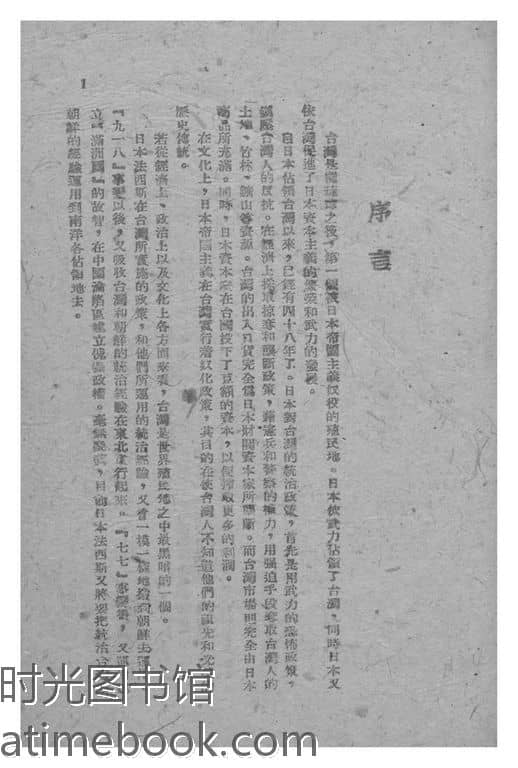 序言
台灣是繼琉球之後，第一個被日本帝國主義奴役的殖民地。日本使武力佔領了台灣，同時日本又
依台灣促進了日本資本主義的繁榮和武力的發展。
自日本佔領台灣以來，已經有四十八年了。日本對台灣的統治政策，首先是用武力的恐怖政策，
鎮壓台灣人的反抗。在經濟上採取掠奪和壟斷政策，藉憲兵和警察的權力，用强迫手段奪取台灣人的
土地、竹林、鑛山等資源。台灣的出入口貿完全爲日本財閥資本家所壟斷。而台灣市場則完全由日本
商品所充滿。同時，日本資本家在台灣投下了巨額的資本，以便榨取更多的利潤。
在文化上，日本帝國主義在台灣實行着奴化政策，其目的在使台灣人不知道他們的祖先和
歷史傳統。
若從經濟上、政治上以及文化上各方面來看，台灣是世界殖民地之中最黑暗的一個。
日本法西斯在台灣所實施的政策，和他們所運用的統治經驗，又會一模一樣地搬到朝鮮去
『九一八』事變以後，又吸收台灣和朝鮮的統治經驗在東北實行起來。『七七』事變後，又
立『滿洲國』的故智，在中國淪陷區建立傀儡政權。毫無疑義，目前日本法西斯又將要把統治台
朝鮮的經驗運用到南洋各佔領地去。
1
时光图书馆
atimebook.com